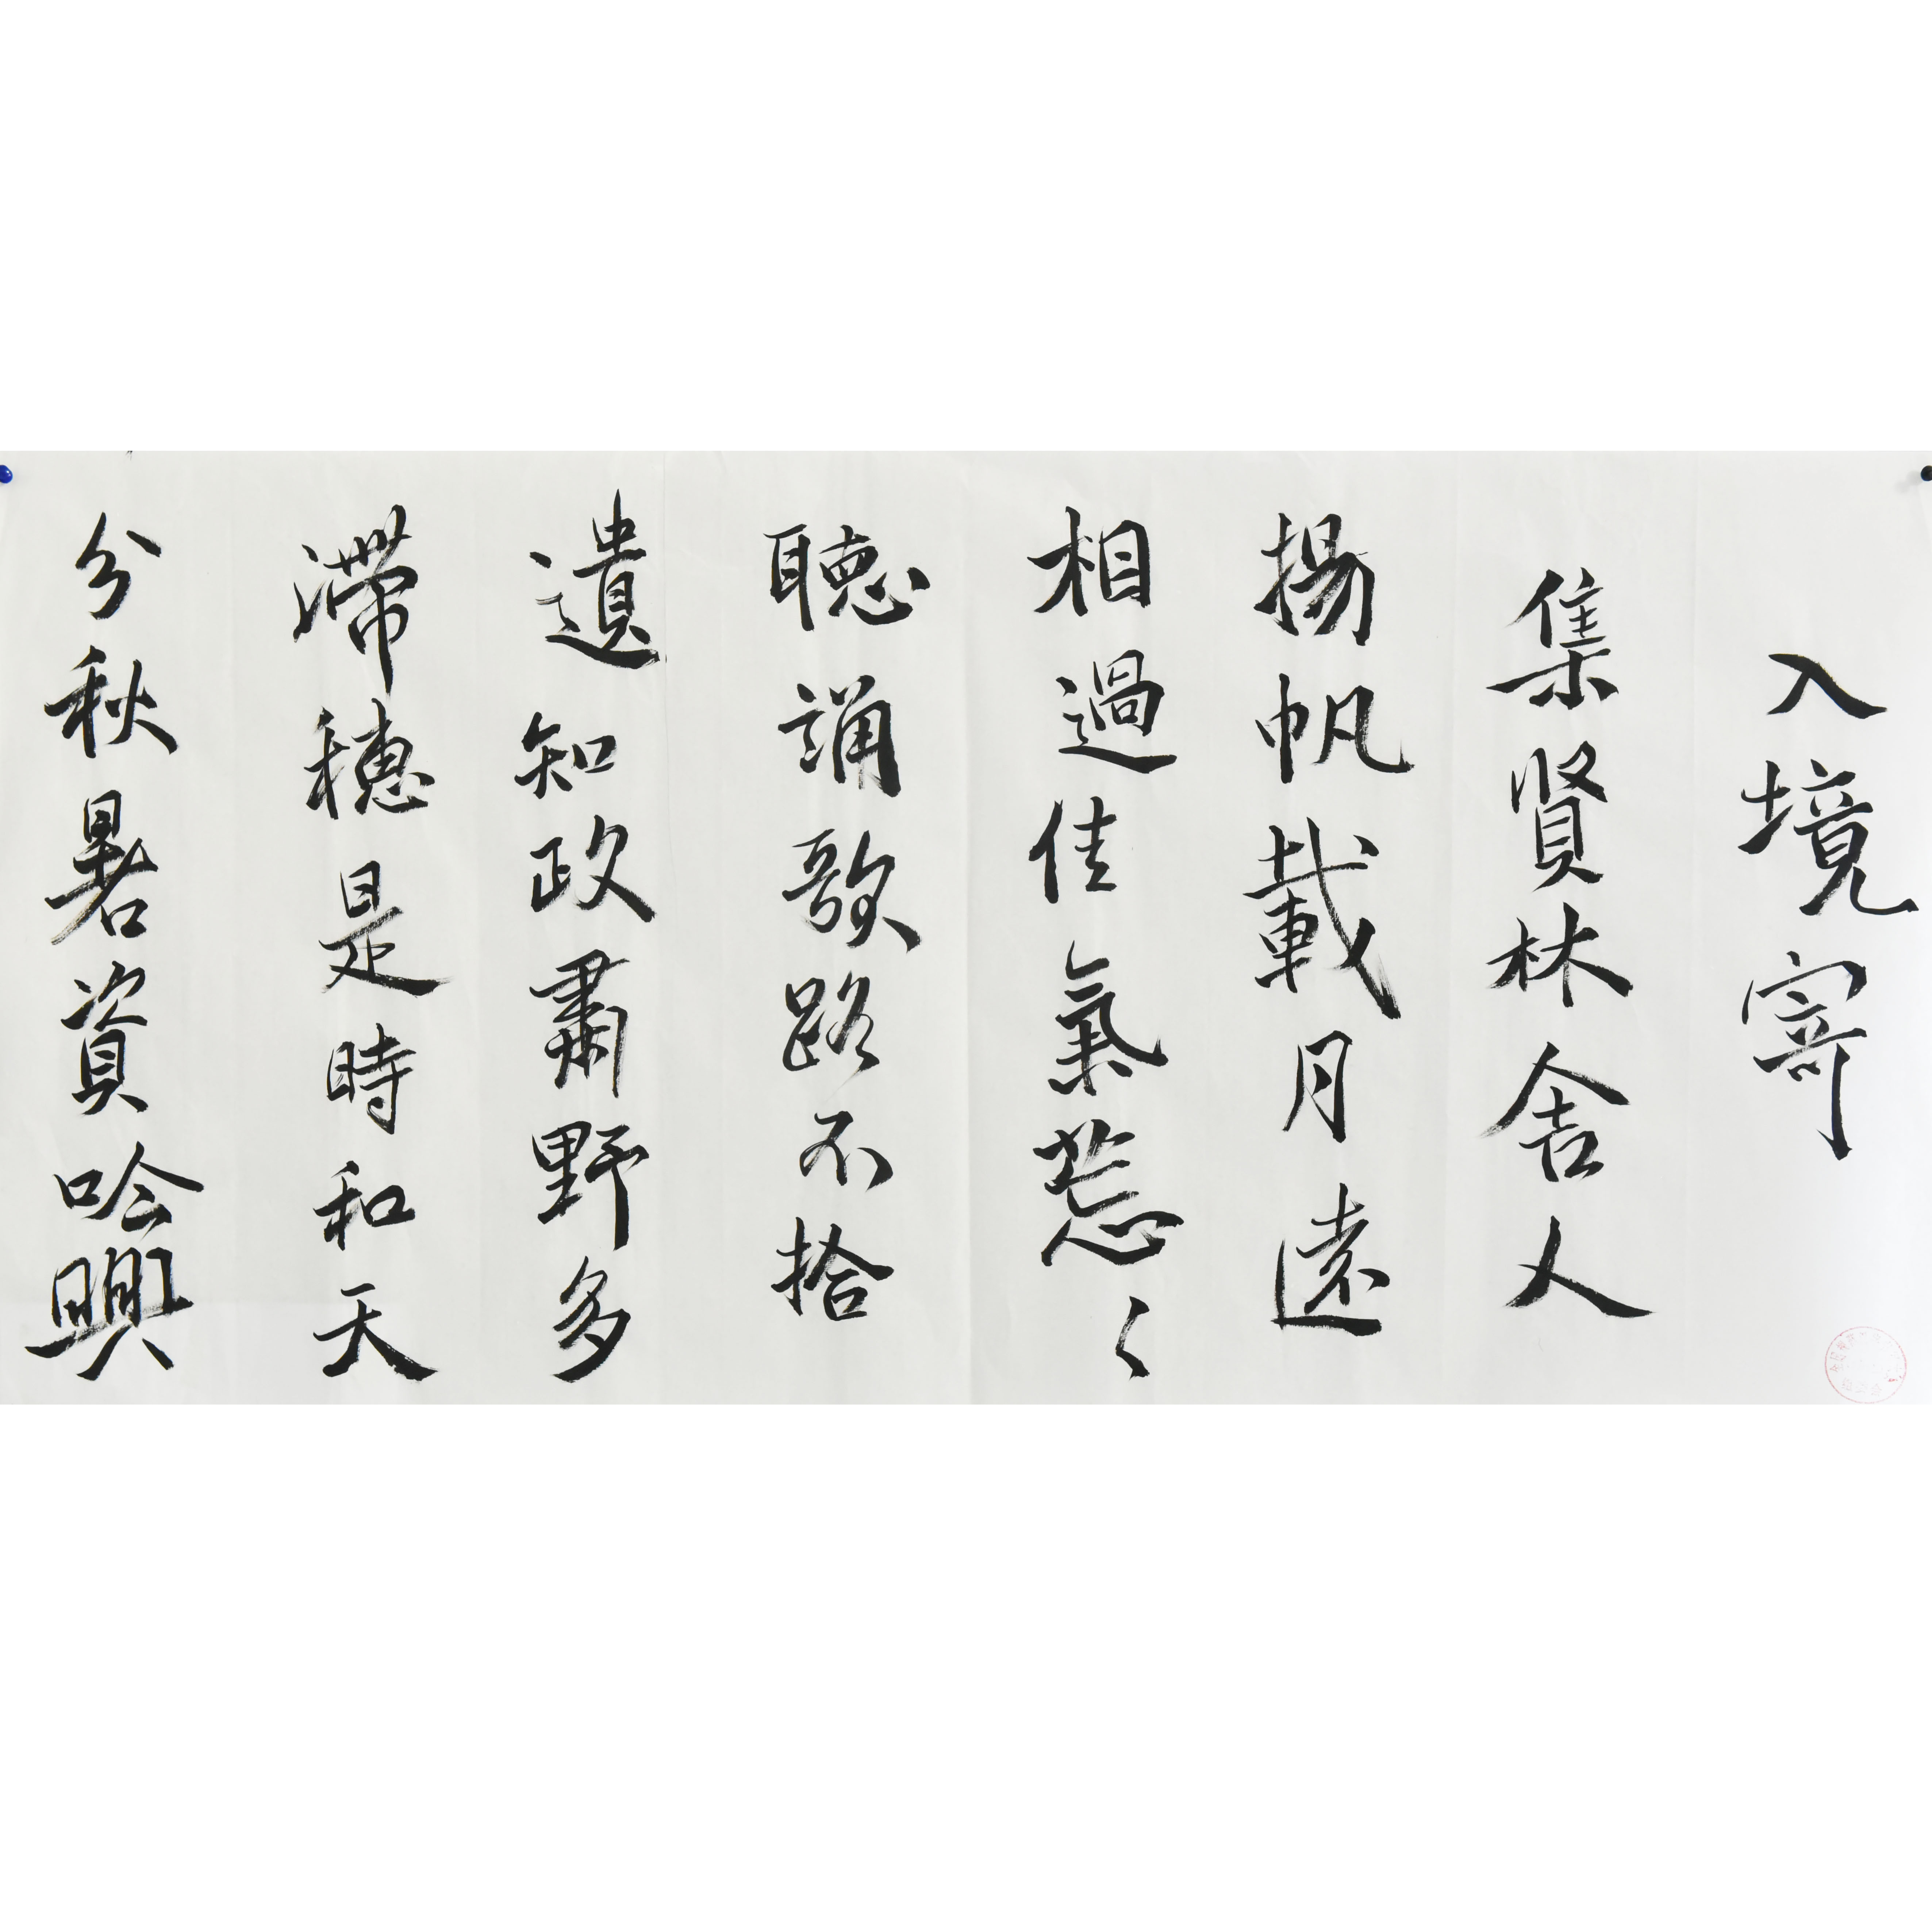 入境寄
集賢林舍人
揚帆載月遠
相過佳氣葱々
聽誦歌路不拾
遺知政肅野多
滯穗是時和天
分秋暑資吟興